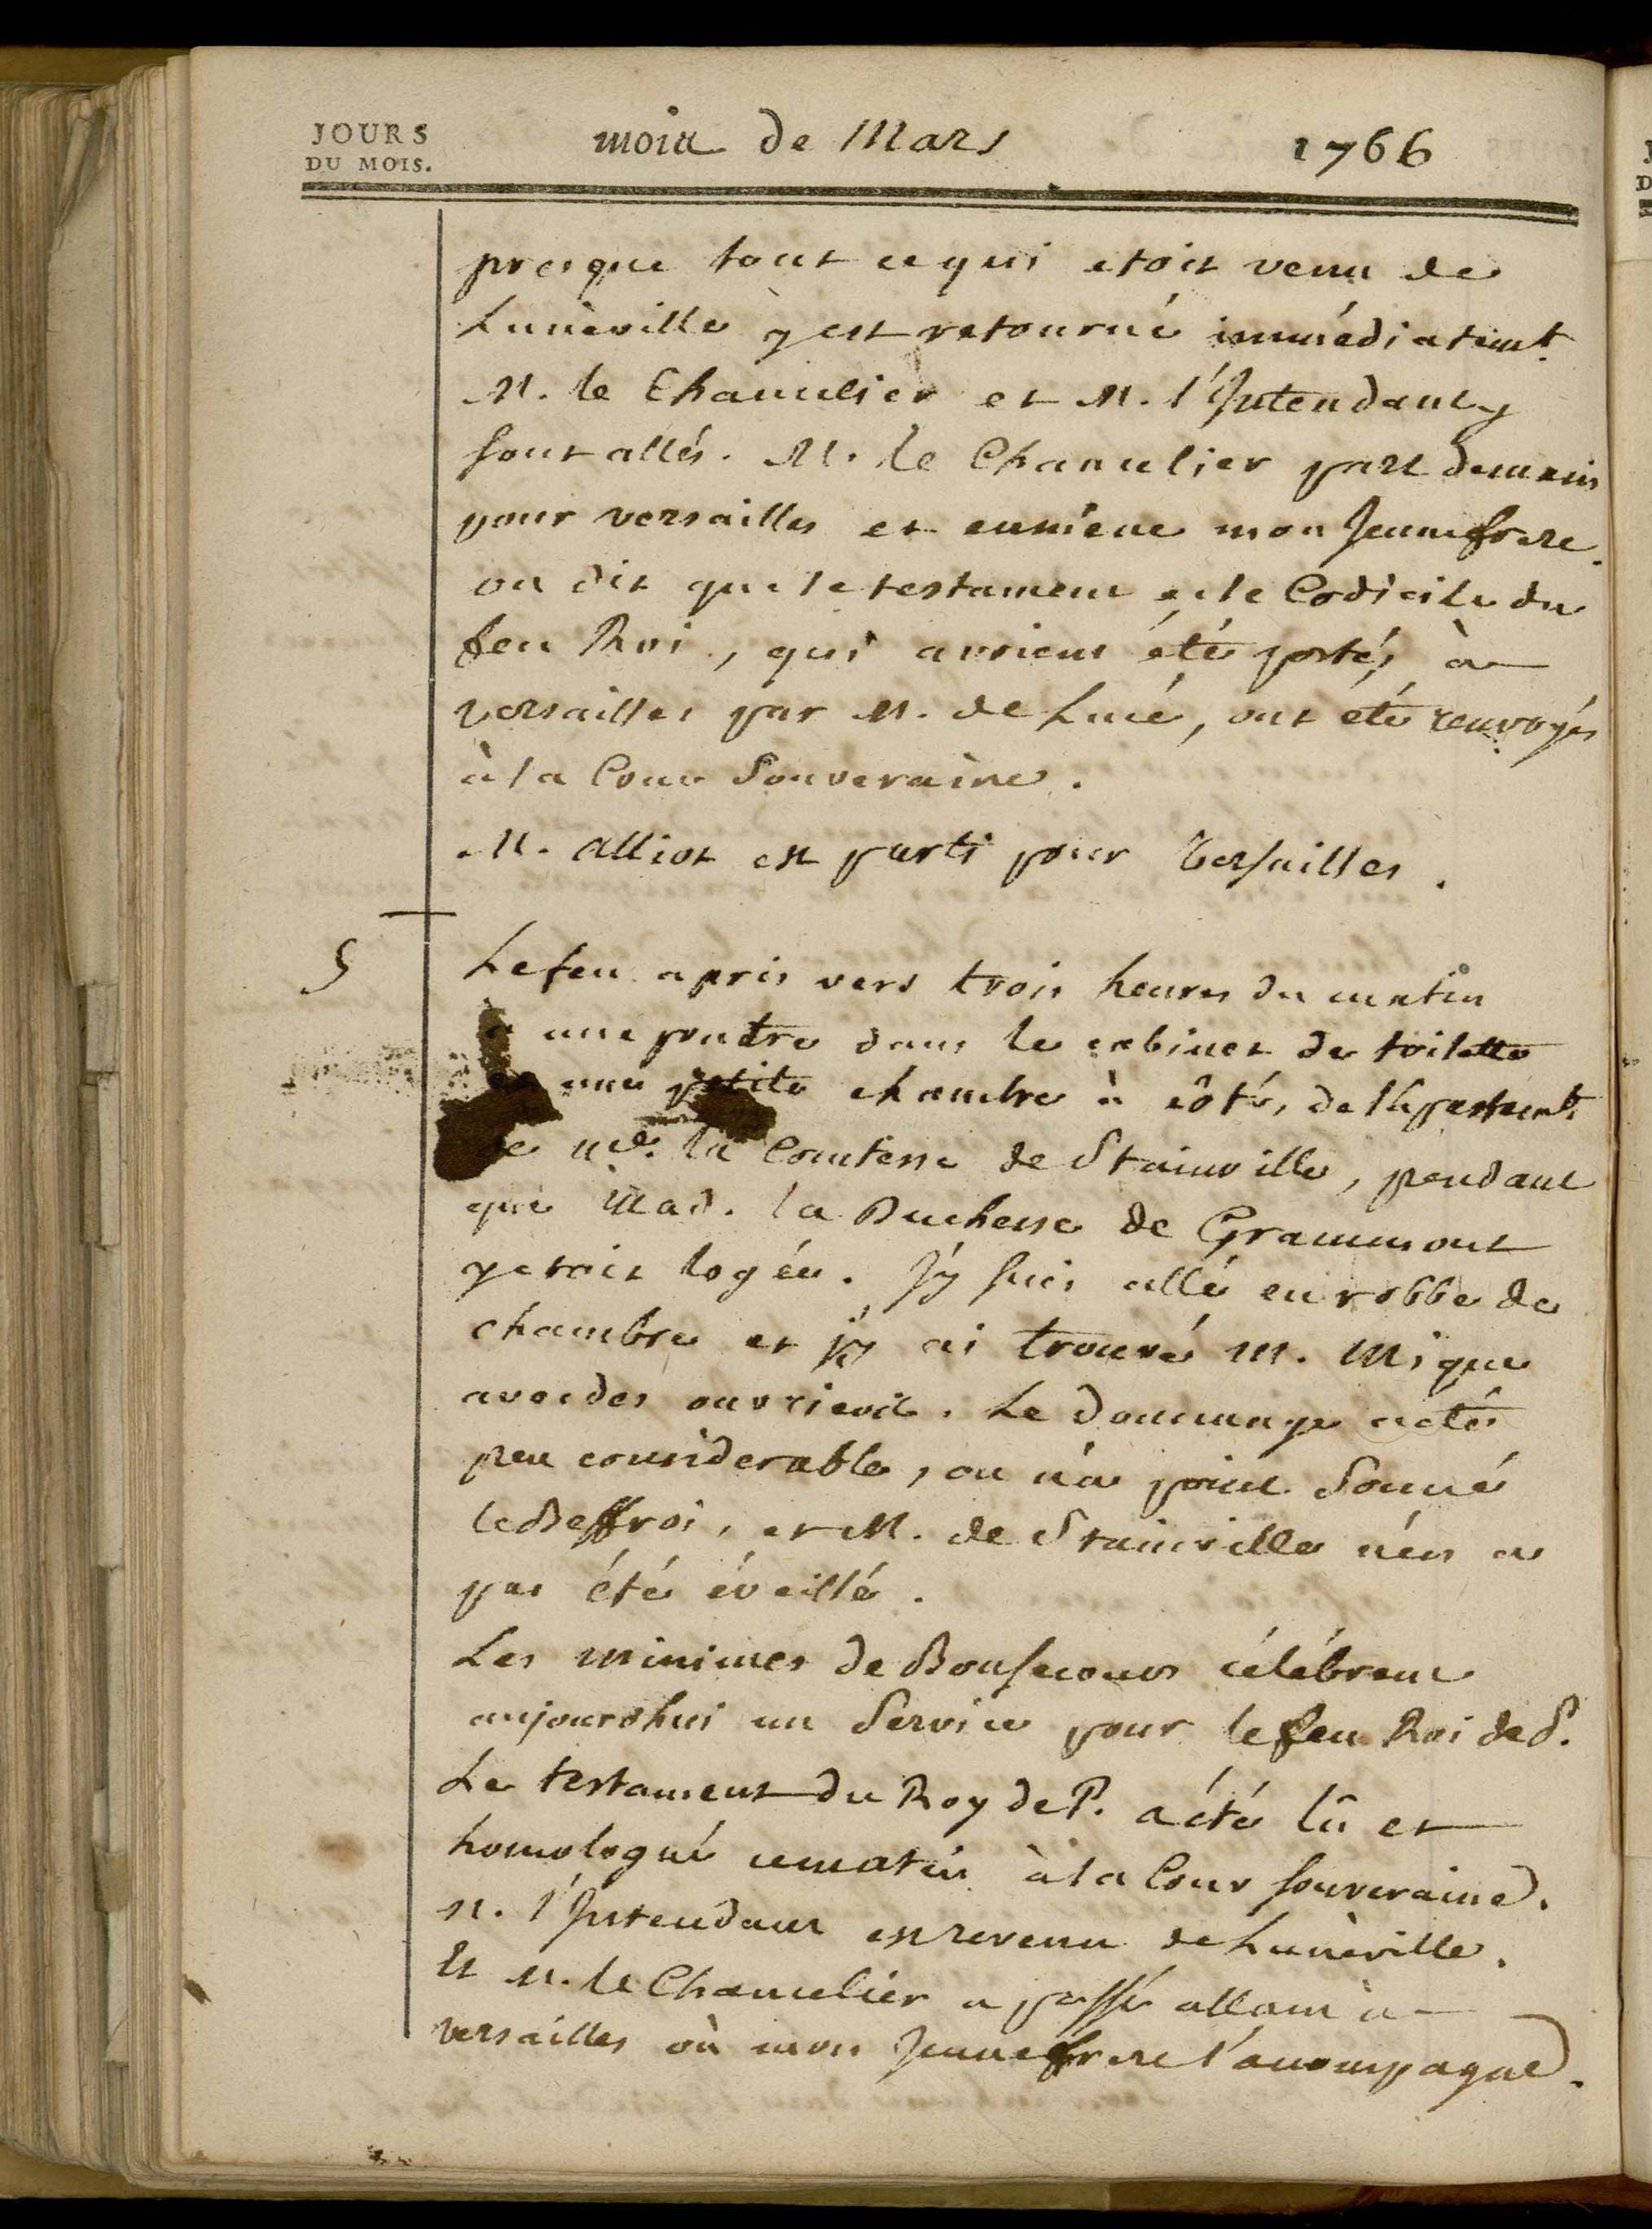 JOURS
DU MOIS.
mois de Mars
1766
presque tout ce qui etoit venu de
Lunéville y est retourné immédiatemt.
M. le Chancelier et M. l'Intendant y
sont allés. M. le Chancelier part demain
pour versailles et emméne mon Jeune frere.
on dit que le testament et le Codicile du
feu Roi, qui avoient été portés à
versailles par M. de Lucé, ont été renvoyés
à la Cour Souveraine.
M. alliot est parti pour Versailles.
5
Le feu a pris vers trois heures du matin
à une poutre dans le cabinet de toilette
une petite chambre à côté, de l'appartemt.
de Mde. la Comtesse de Stainville, pendant
que Mad. la Duchesse de Grammont
y etoit logée. J'y suis allé en robbe de
chambre et j'y ai trouvé M. Mique
avec des ouvriers. Le dommage a été
peu considerable, on n'a point sonné
le Beffroi, et M. de Stainville n'en a
pas été éveillé.
Les Minimes de Bonsecours célébrent
aujourdhui un Service pour le feu Roi de P.
Le testament du Roy de P. a été lû et
homologué ce matin à la Cour souveraine.
M. l'Intendant est revenu de Lunéville.
Et M. le Chancelier a passé allant à
versailles où mon Jeune frere l'accompagne.